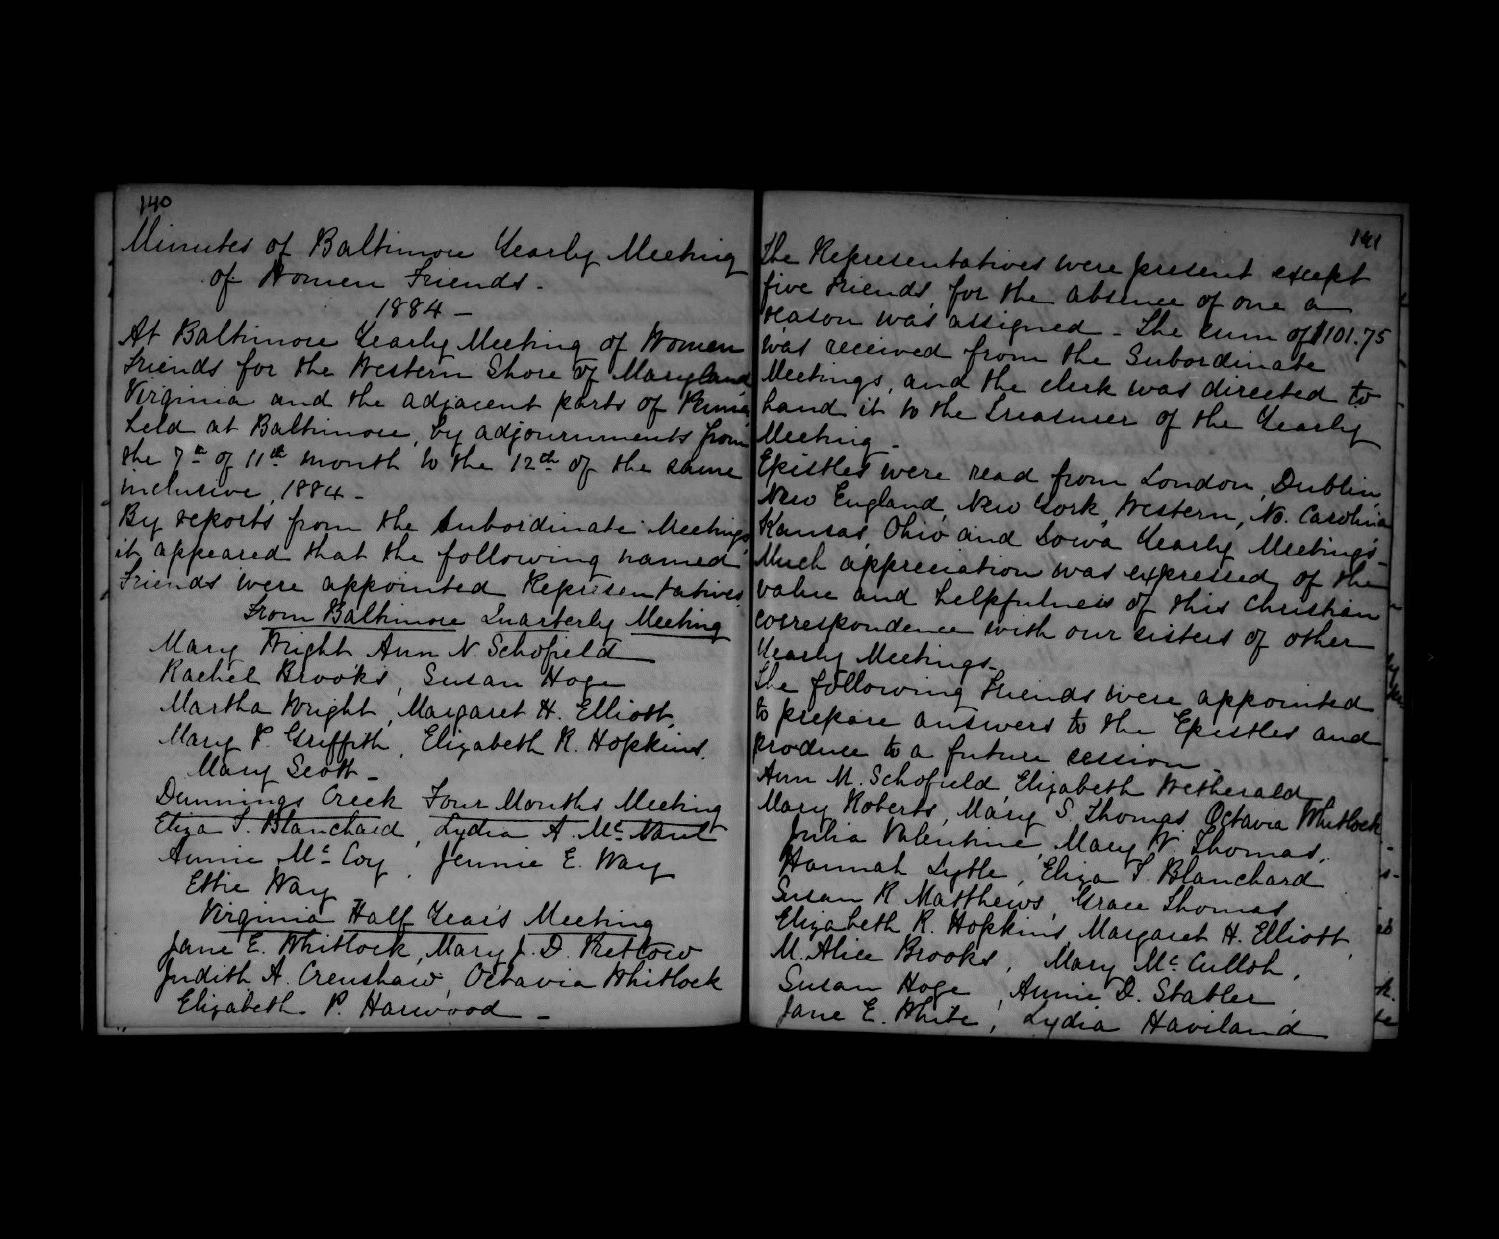 140
Minutes of Baltimore Yearly Meeting
of Women Friends.
1884 -
At Baltimore Yearly Meeting of Women
Friends for the Western Shore of Maryland
Virginia and the adjacent parts of Penna
held at Baltimore, by adjournments from
the 7th of 11th month to the 12th of the same
inclusive, 1884 -
By reports from the Subordinate Meetings
it appeared that the following named
Friends were appointed Representatives
From Baltimore Quarterly Meeting
Mary Wright Ann N. Schofield
Rachel Brooks, Susan Hoge
Martha Wright, Margaret H. Elliott,
Mary P. Griffith, Elizabeth R. Hopkins.
Mary Scott -
Dunnings Creek Four Months Meeting
Eliza T. Blanchard, Lydia A. Mc Nant
Annie Mc Coy, Jennie E. Way
Effie Way
Virginia Half Years Meeting
Jane E. Whitlock, Mary J. D.
Judith A. Crenshaw, Octavia Whitlock
Elizabeth P. Harwood -
141
The Representatives were present except
five Friends, for the absence of one a
reason was assigned - The sum of $101.75
was received from the Subordinate
Meetings, and the clerk was directed to
hand it to the Treasurer of the Yearly
Meeting -
Epistles were read from London, Dublin,
New England, New York, Western, No. Carolina
Kansas, Ohio and Iowa Yearly Meetings -
Much appreciation was expressed, of the
value and helpfulness of this Christian
correspondence with our sisters of other
Yearly Meetings -
The following Friends were appointed
to prepare answers to the Epistles and
produce to a future session -
Ann M. Schofield, Elizabeth Wetherald
Mary Roberts, Mary S. Thomas, Octavia Whitlock
Julia Valentine, Mary N. Thomas,
Hannah Lytle, Eliza T. Blanchard
Susan R. Matthews, Grace Thomas
Elizabeth R. Hopkins, Margaret H. Elliott,
M. Alice Brooks, Mary Mc Culloh,
Susan Hoge, Annie D. Stabler,
Jane E. White, Lydia Haviland